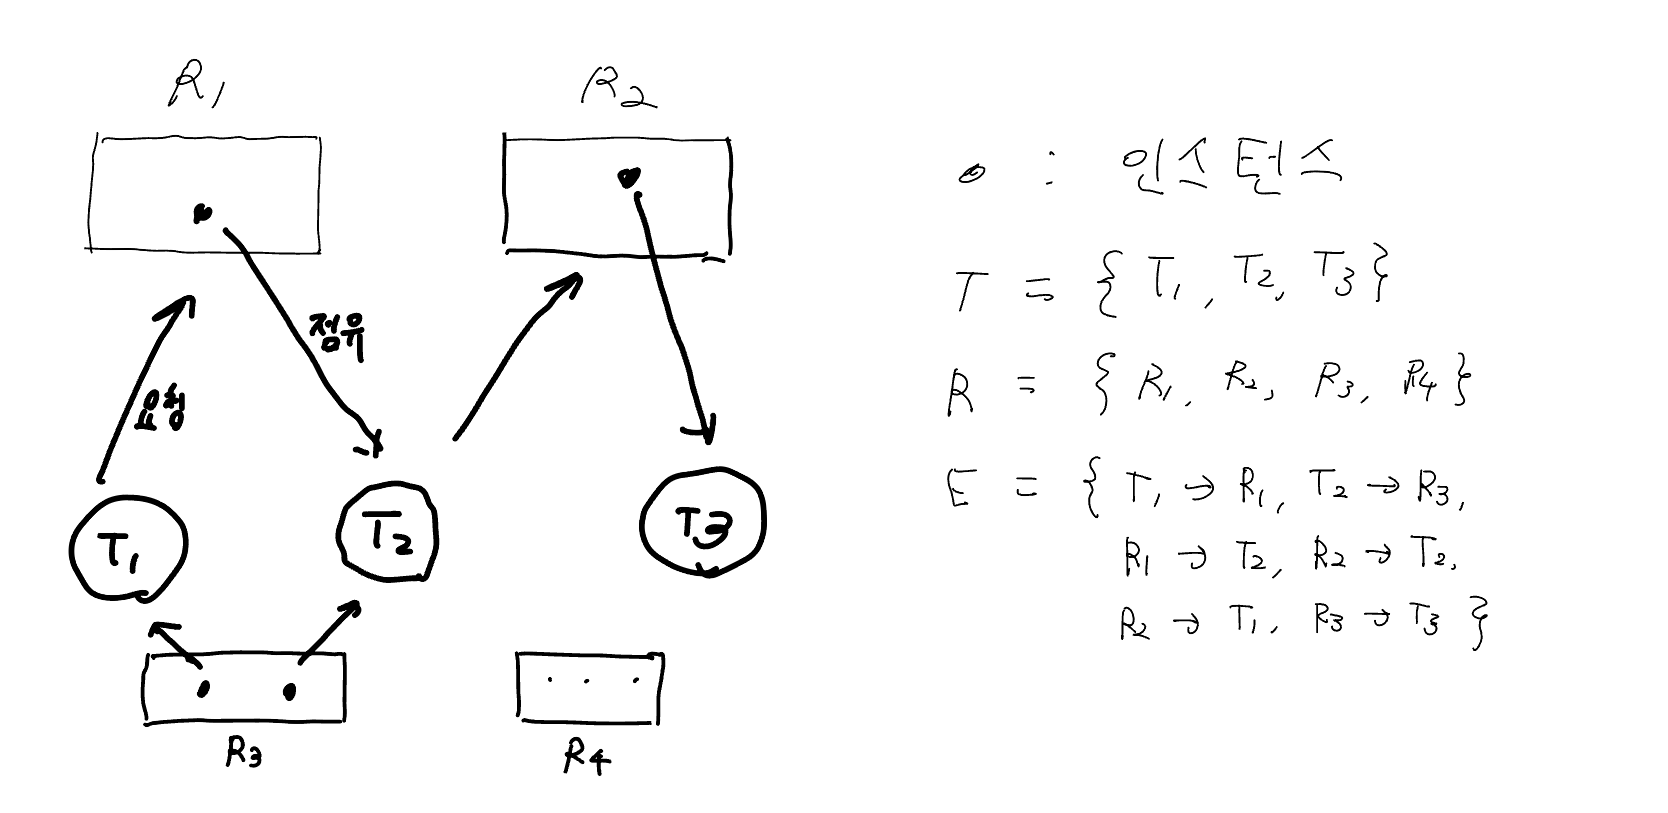 R1
R2
점유
요청
T1
T2
T3
R3
R4
: 인스턴스
T = { T1, T2, T3 }
R = { R1, R2, R3, R4 }
E = { T1 → R1, T2 → R3,
R1 → T2, R2 → T2,
R2 → T1, R3 → T3 }